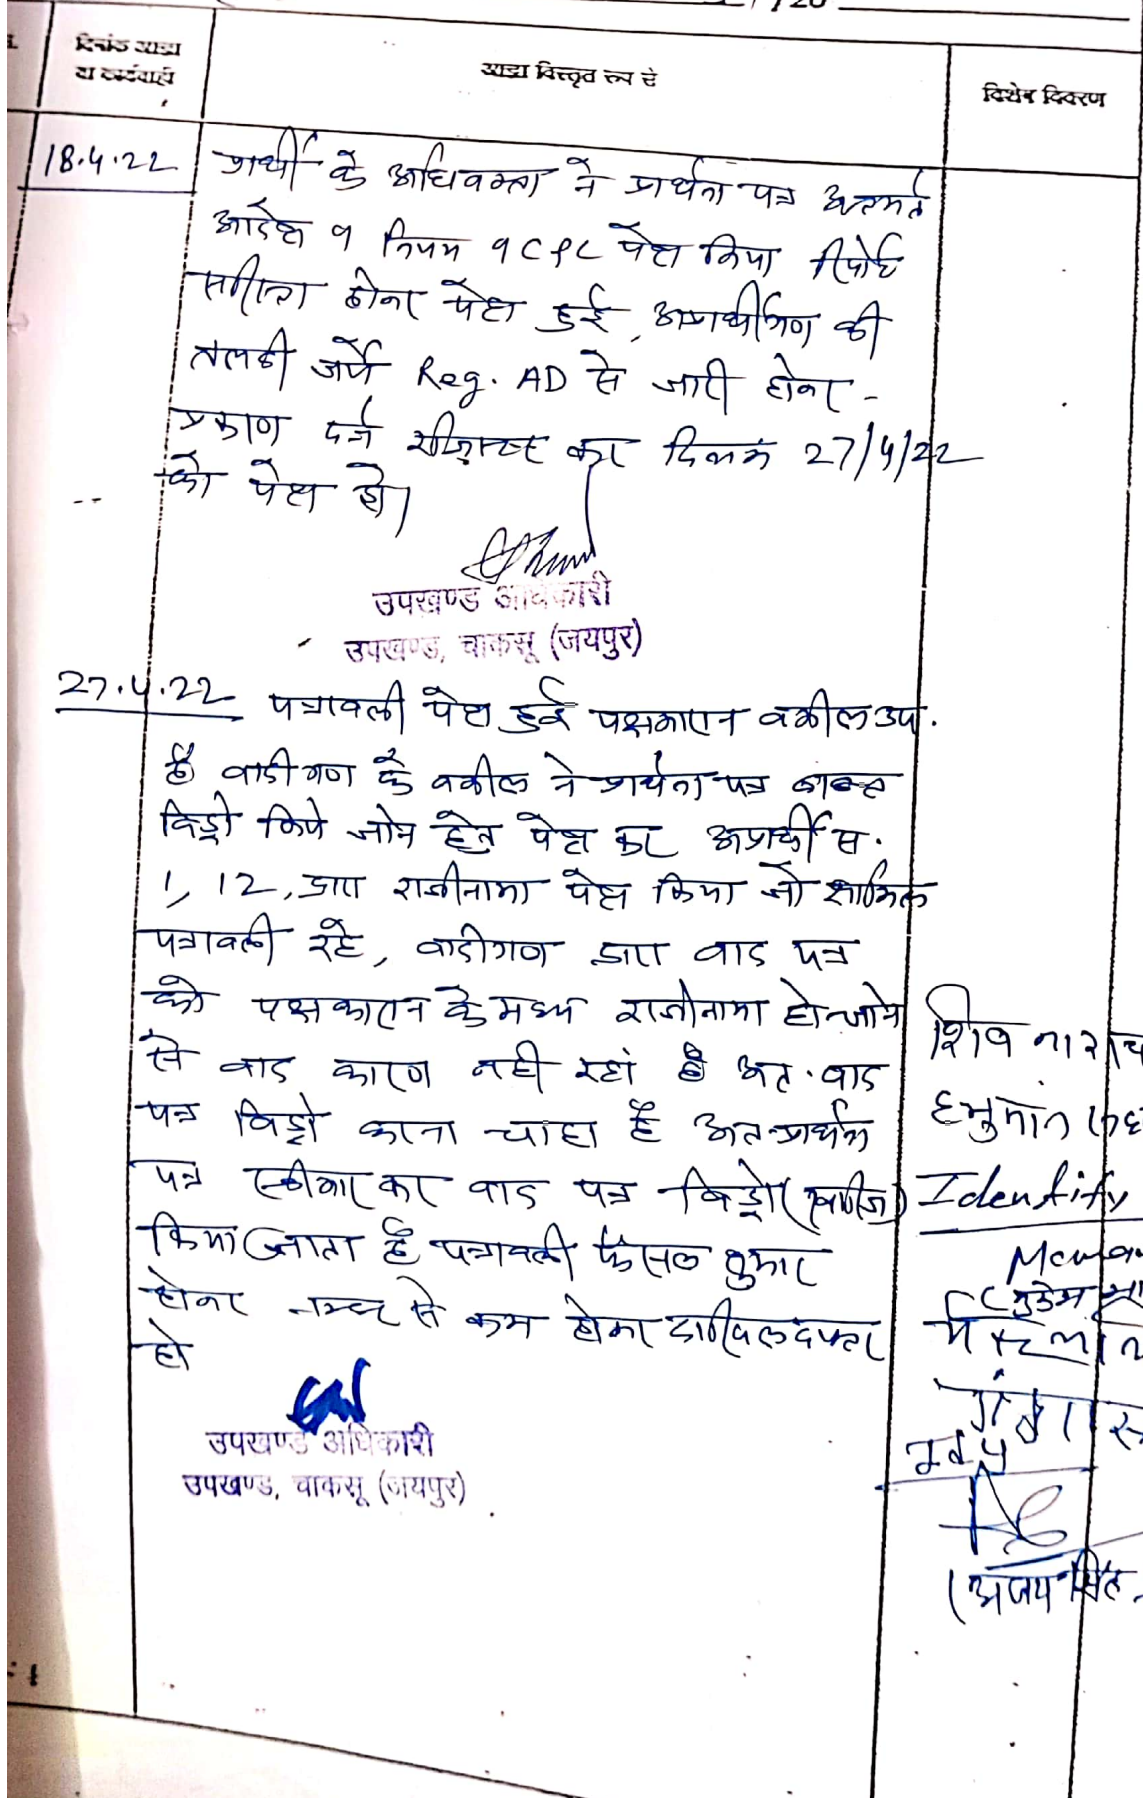 /20
दिनांक आज्ञा
या कार्यवाही
आज्ञा विस्तृत रूप से
विशेष विवरण
18.4.22
प्रार्थी के अधिवक्ता ने प्रार्थना पत्र अन्तर्गत
आदेश 9 नियम 9 CPC पेश किया रिपोर्ट
होकर पेश हुई, अप्रार्थीगण की
तलबी जर्ये Reg. AD से जारी होकर -
प्रकरण दर्ज रजिस्टर कर दिनांक 27/4/22
को पेश हो।
उपखण्ड अधिकारी
उपखण्ड, चाकसू (जयपुर)
27.4.22 पत्रावली पेश हुई पक्षकारान वकील उप.
है वादीगण के वकील ने प्रार्थना पत्र बाबत
विड्रो किये जाने हेतु पेश कर अप्रार्थी स.
1, 12, द्वारा राजीनामा पेश किया जो शामिल
पत्रावली रहे, वादीगण द्वारा वाद पत्र
को पक्षकारान के मध्य राजीनामा हो जाने
से वाद कारण नही रहा है अत. वाद
पत्र विड्रो करना चाहा है अतः प्रार्थना
पत्र स्वीकार कर वाद पत्र विड्रो (खारीज)
किया जाता है पत्रावली फैसल शुमार
होकर नम्बर से कम होकर दाखिल दफ्तर
हो
उपखण्ड अधिकारी
उपखण्ड, चाकसू (जयपुर)
शिव
हनुमान
Identify
(अजय सिंह